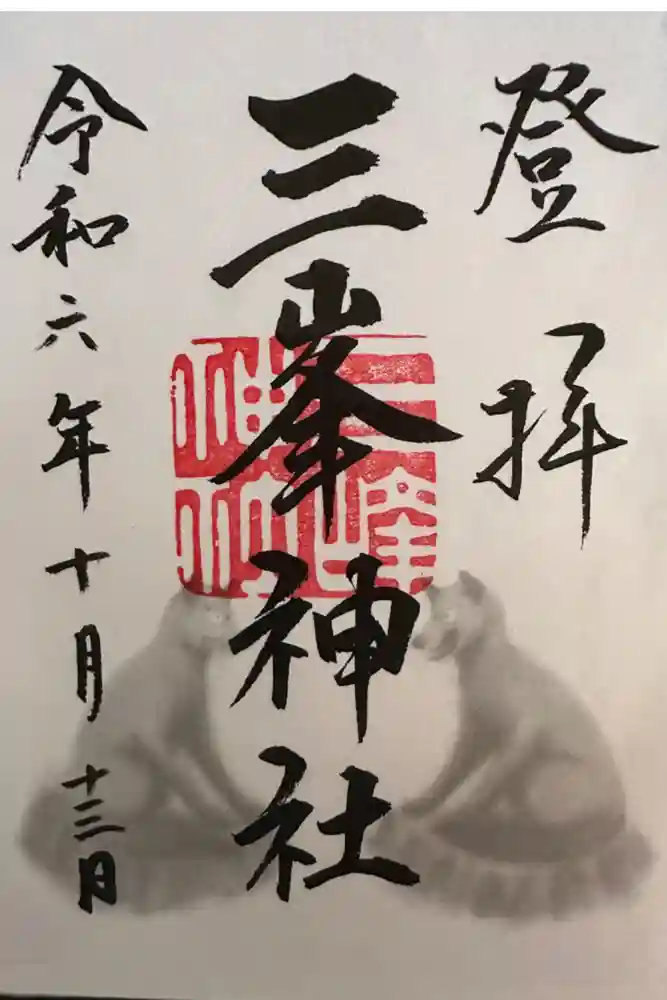 登拝
三峯神社
令和六年十月十三日